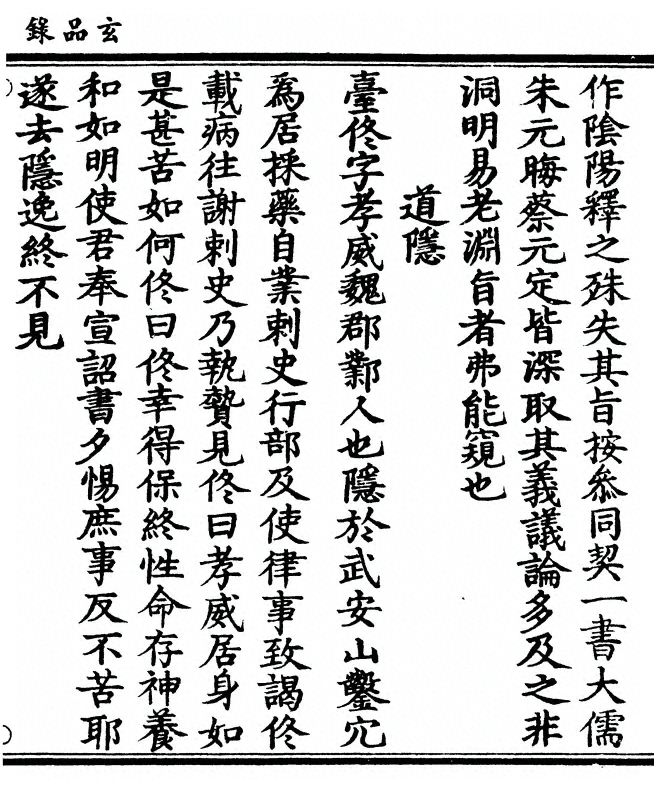 玄品錄
作陰陽釋之殊失其旨按叅同契一書大儒
朱元晦蔡元定皆深取其義議論多及之非
洞明易老淵旨者弗能窺也
道隱
臺佟字孝威魏郡鄴人也隱於武安山鑿穴
為居採藥自業刺史行部及使律事致謁佟
載病往謝刺史乃執贄見佟曰孝威居身如
是甚苦如何佟曰佟幸得保終性命存神養
和如明使君奉宣詔書夕惕庶事反不苦耶
遂去隱逸終不見